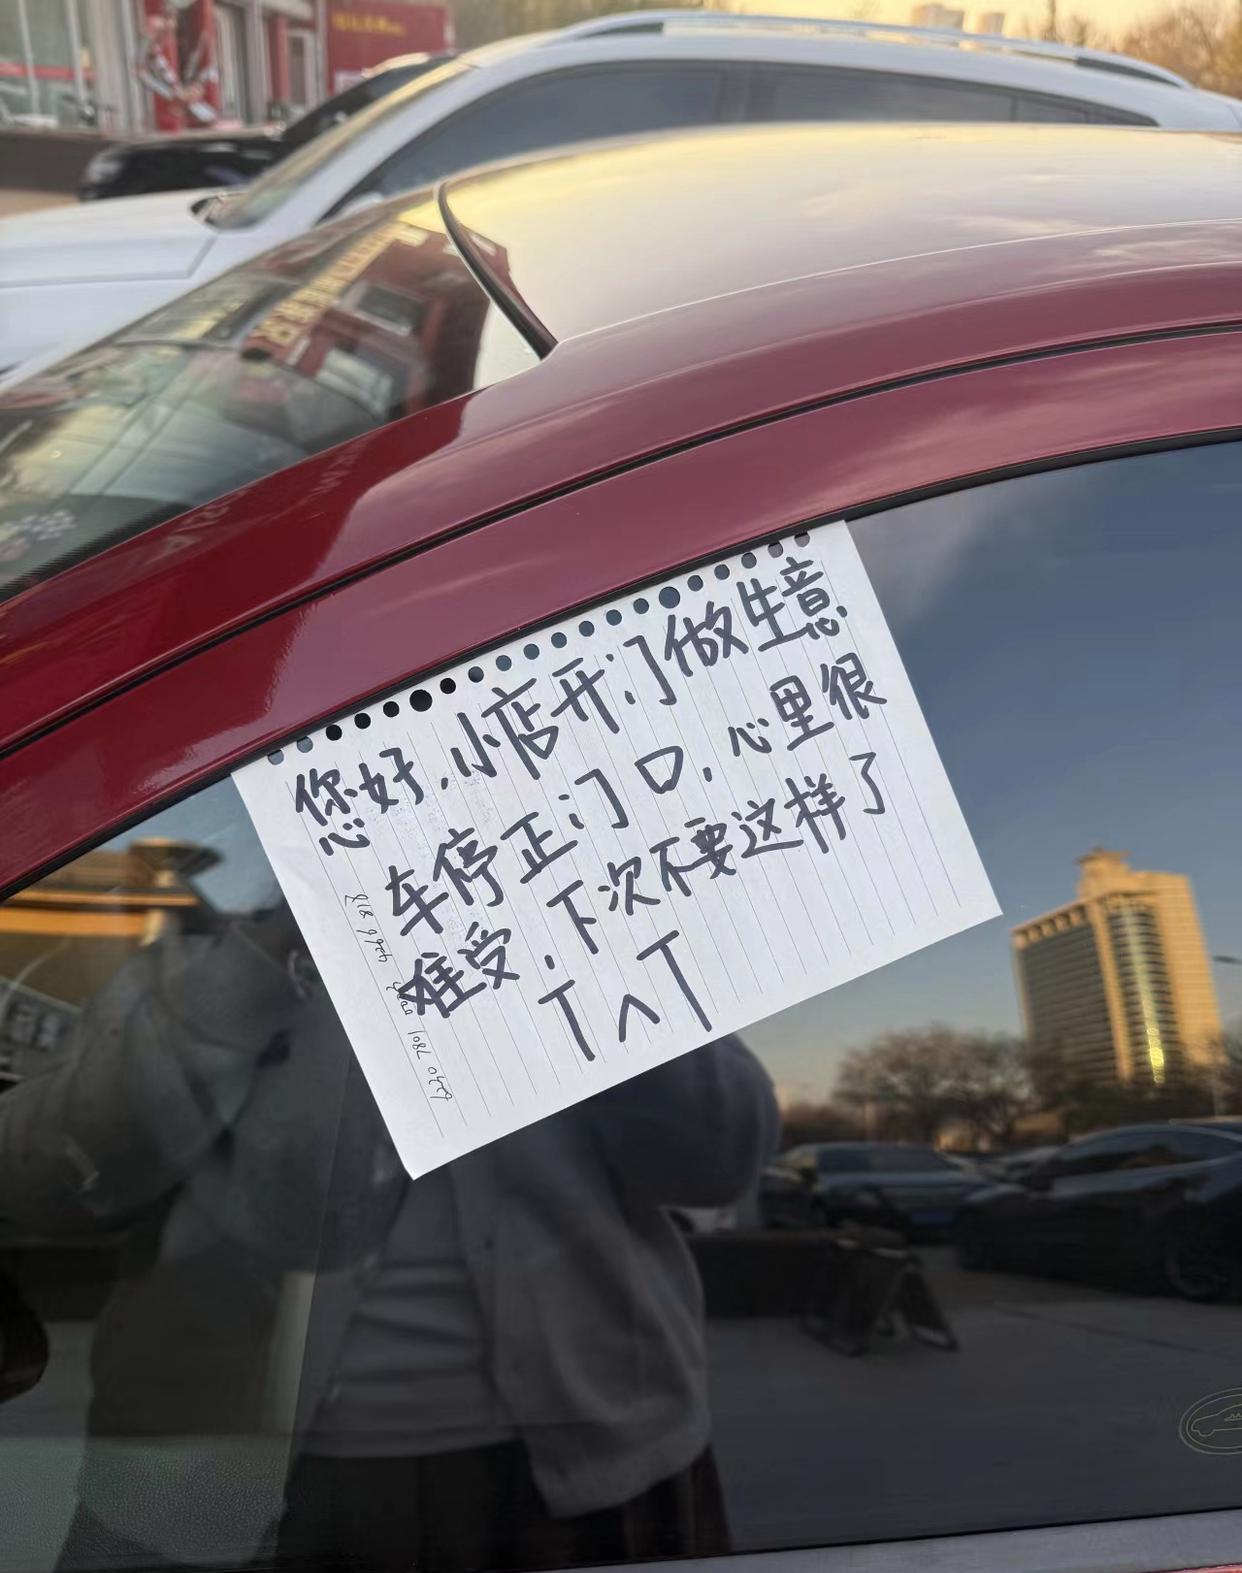 您好.小店开门做生意
车停正门口.心里很
难受.下次不要这样了
T^T